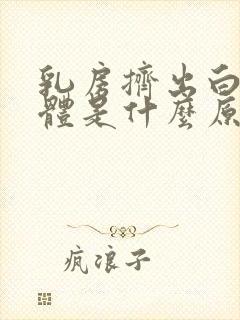 乳房擠出白
體是什麼原
疯浪子